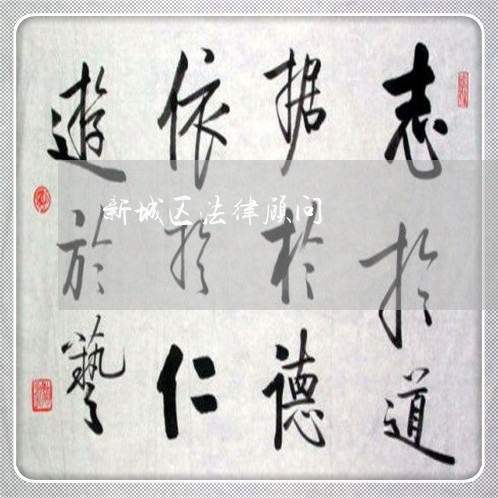 志於道
据於德
依於仁
遊於藝
新城区法律顾问